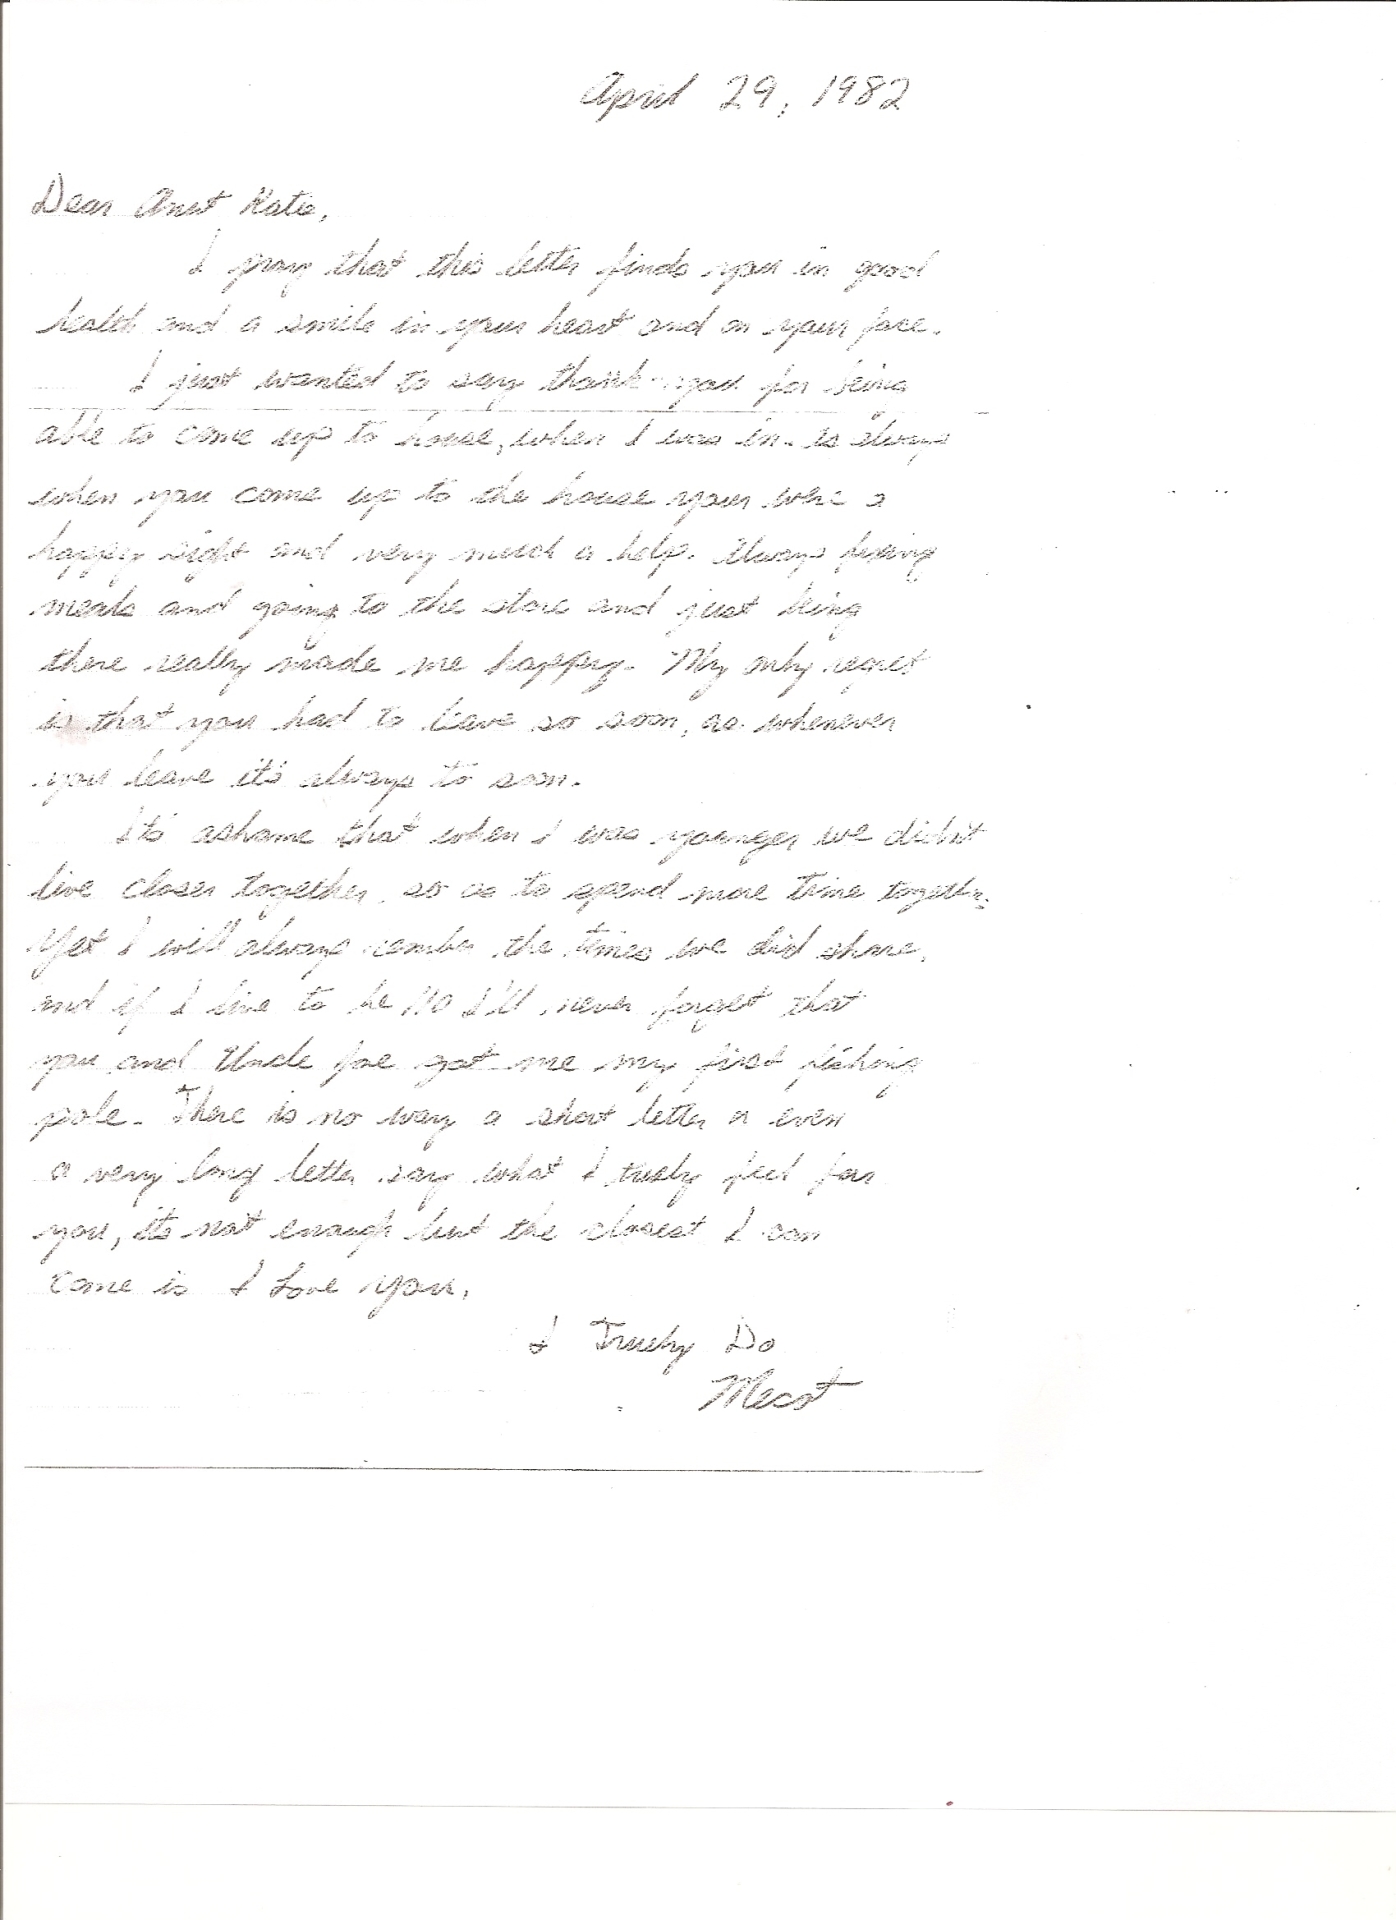 April 29, 1982
Dear Anut Katie,
I pray that this letter finds you in good
health and a smile in your heart and on your face.
I just wanted to say thank-you for being
able to come up to house, when I was in. As always
when you come up to the house your were a
happy sight and very much a help. Always fixing
meals and going to the store and just being
there really made me happy. My only regret
is that you had to leave so soon, as whenever
you leave it's always to soon.
It's ashame that when I was younger we didn't
live closer together, so as to spend more time together.
Yet I will always rember the times we did share,
and if I live to be 110 I'll never forget that
you and Uncle Joe got me my first fishing
pole. There is no way a short letter or even
a very long letter say what I truely feel for
you, its not enough but the closest I can
come is I Love You.
I Truely Do